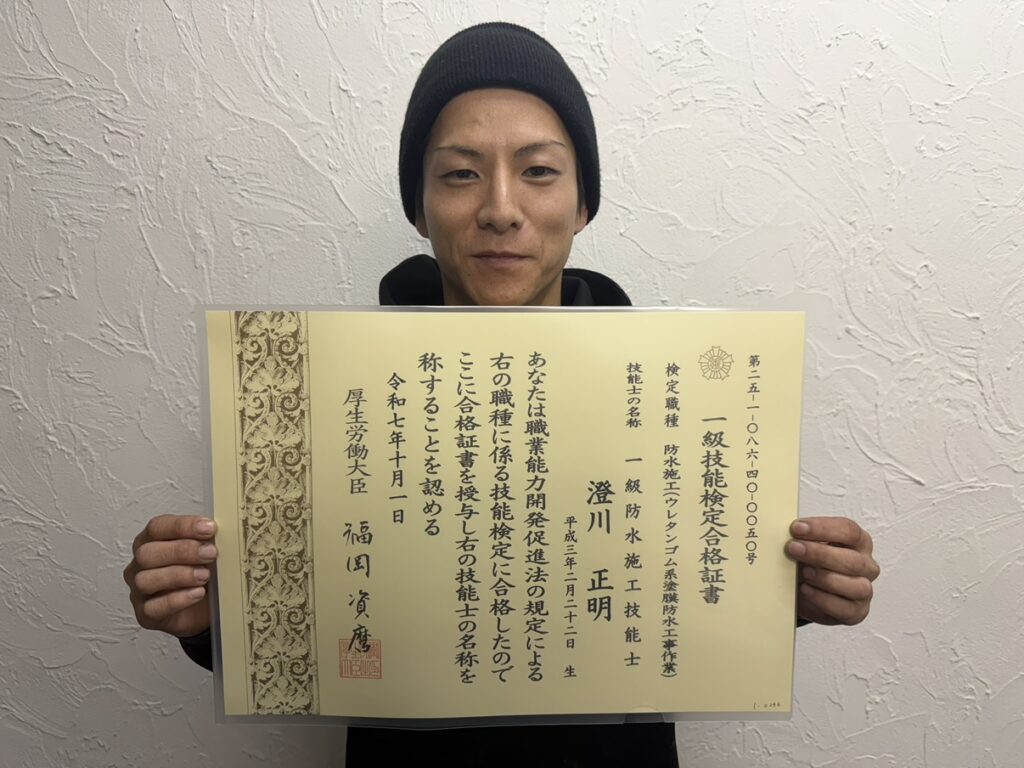 第二五-一-〇八六-四〇-〇〇五〇号
一級技能検定合格証書
検定職種 防水施工(ウレタンゴム系塗膜防水工事作業)
技能士の名称 一級防水施工技能士
澄川 正明
平成三年二月二十二日 生
あなたは職業能力開発促進法の規定による
右の職種に係る技能検定に合格したので
ここに合格証書を授与し右の技能士の名称を
称することを認める
令和七年十月一日
厚生労働大臣 福岡 資麿